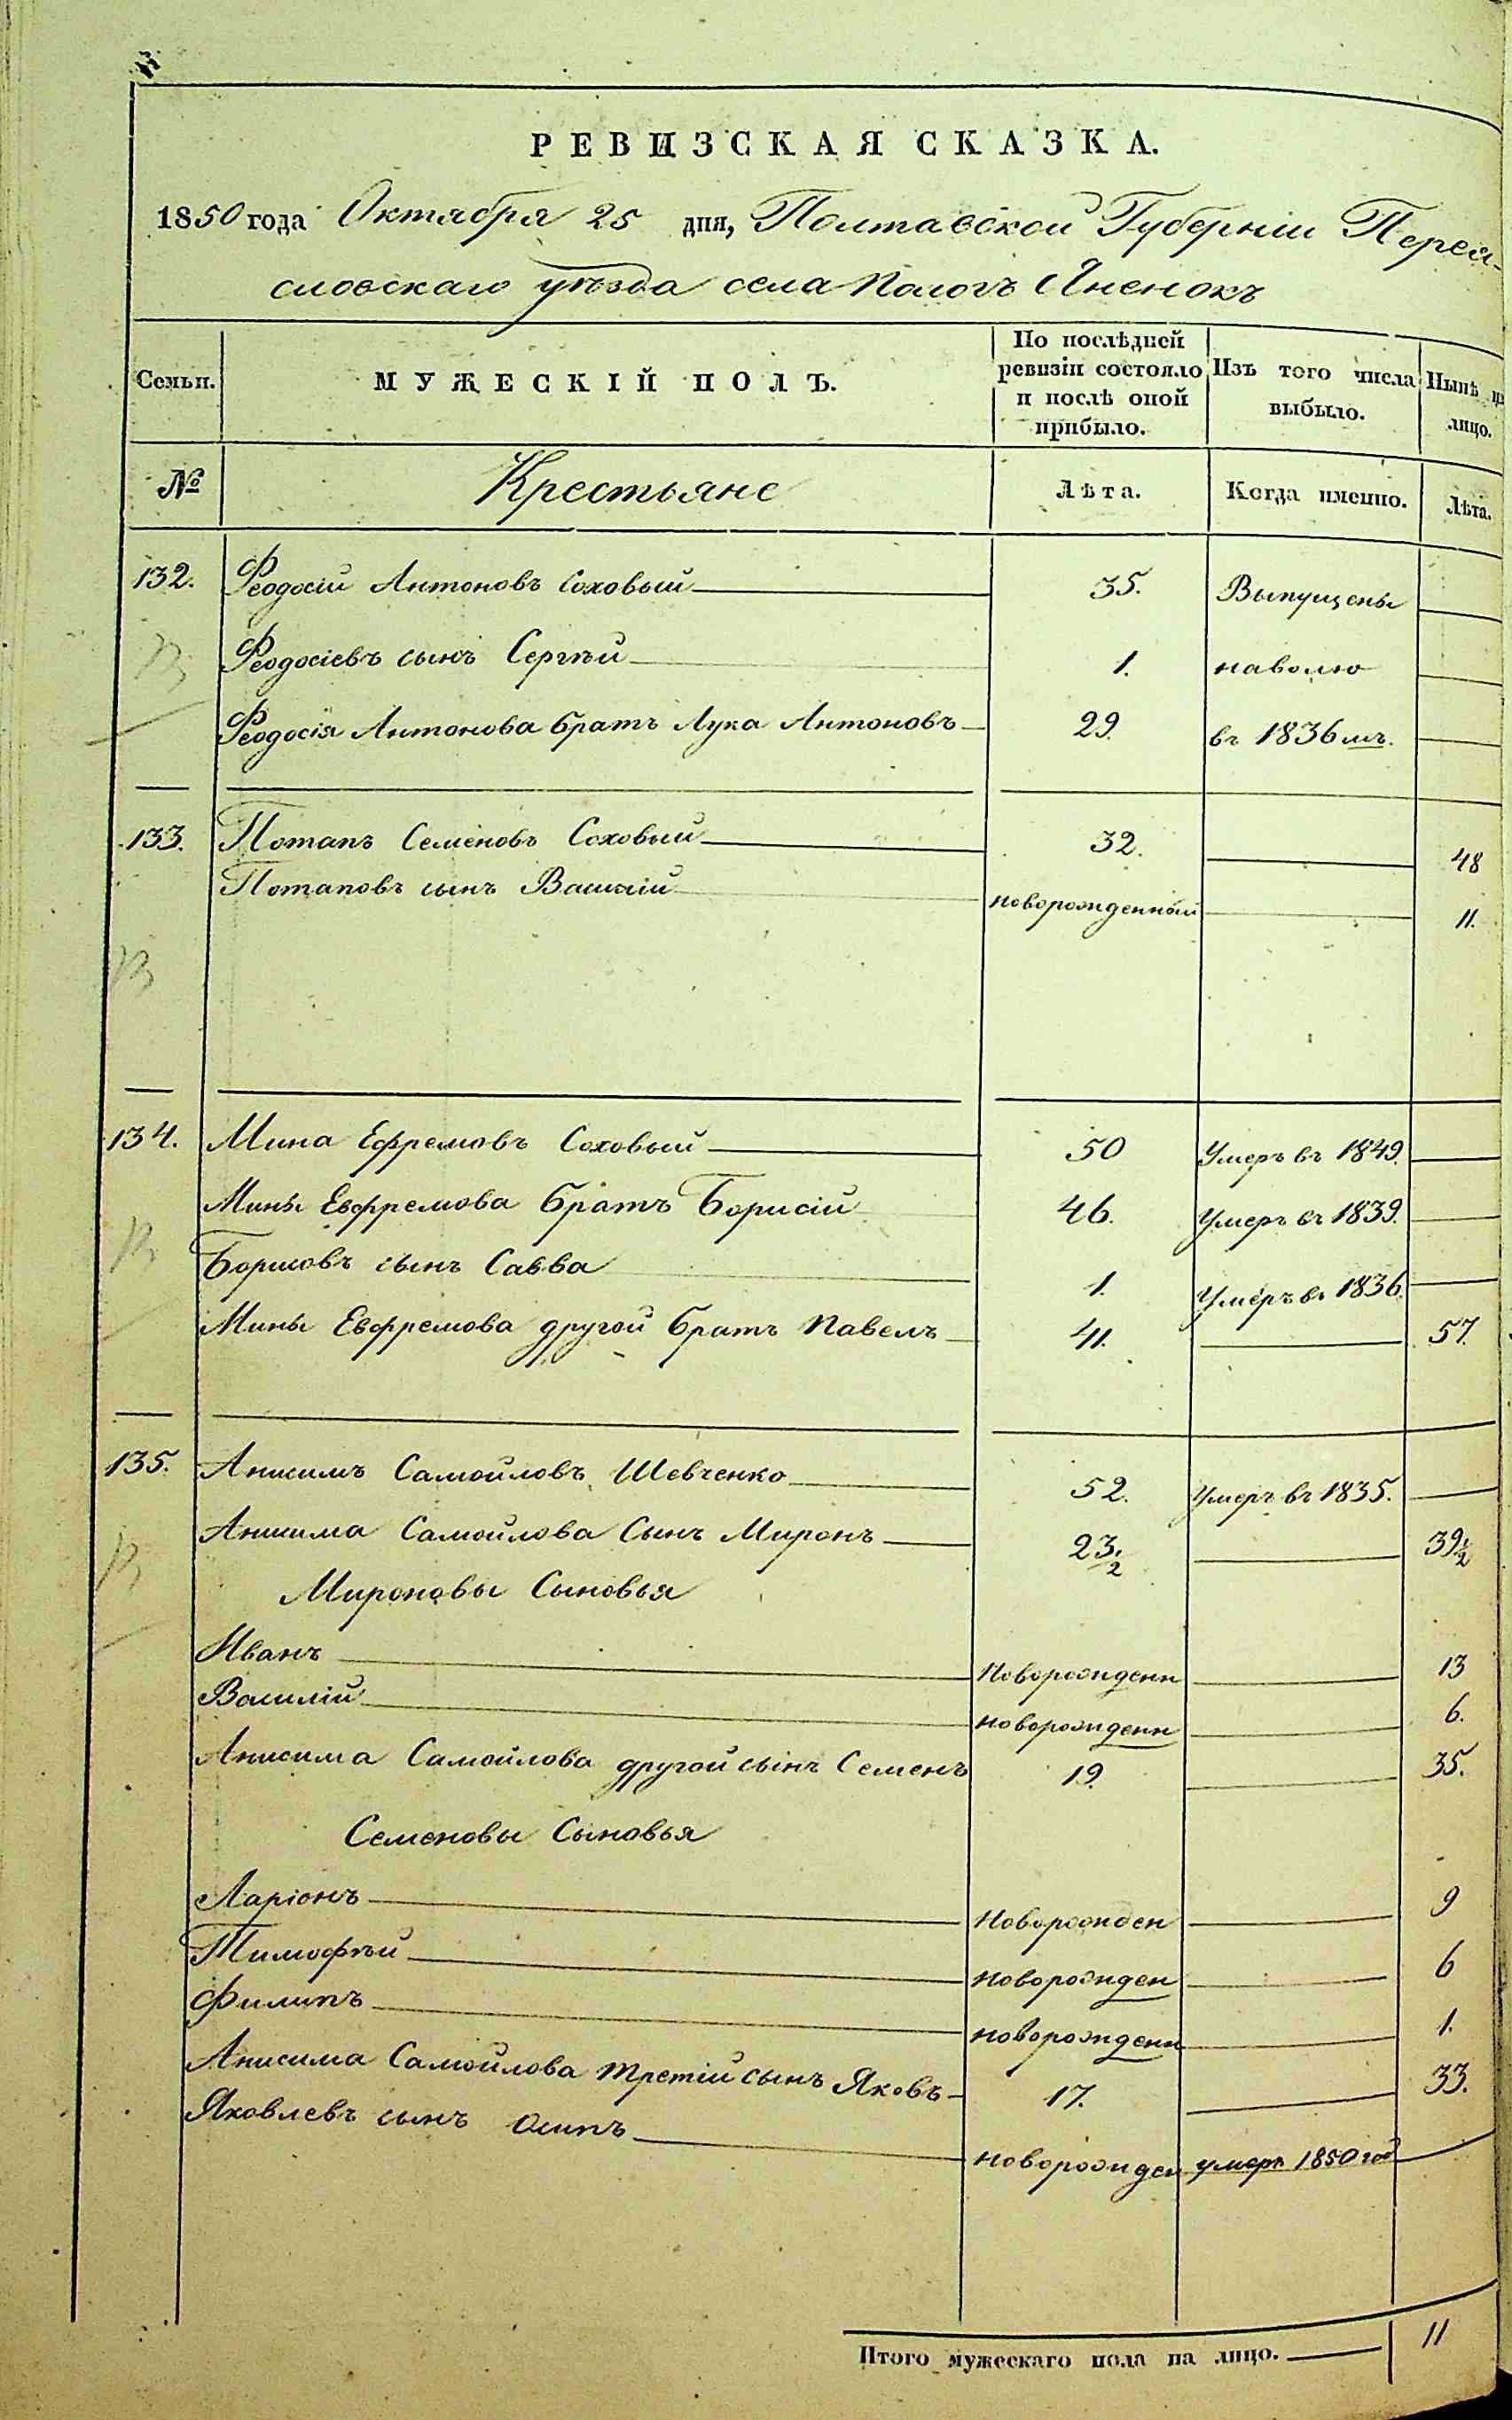 РЕВИЗСКАЯ СКАЗКА.
1850 года Октября 25 дня, Полтавской Губерніи Перея-
словскаго уѣзда села Пологъ Яненокъ
Семьи.
МУЖЕСКІЙ ПОЛЪ.
По послѣдней ревизіи состояло и послѣ оной прибыло.
Изъ того числа выбыло.
Нынѣ на лицо.
№ Крестьяне Лѣта. Когда именно. Лѣта.
132. Феодосій Антоновъ Соховый 35. Выпущены
Феодосіевъ сынъ Сергѣй 1. наволю
Феодосія Антонова братъ Лука Антоновъ 29. въ 1836 мъ.
133. Потапъ Семеновъ Соховый 32. 48
Потаповъ сынъ Василій новорожденный 11.
134. Мина Ефремовъ Соховый 50 Умеръ въ 1849.
Мины Евфремова братъ Борисій 46. Умеръ въ 1839.
Борисовъ сынъ Савва 1. Умеръ въ 1836.
Мины Евфремова другой братъ Павелъ 41. 57.
135. Анисимъ Самойловъ Шевченко 52. Умеръ въ 1835.
Анисима Самойлова Сынъ Миронъ 23 1/2 39 1/2
Мироновы Сыновья
Иванъ Новорожденн 13
Василій новорожденн 6.
Анисима Самойлова другой сынъ Семенъ 19. 35.
Семеновы Сыновья
Ларіонъ Новорожден 9
Тимофѣй новорожден 6
Филипъ новорожденн 1.
Анисима Самойлова третій сынъ Яковъ 17. 33.
Яковлевъ сынъ Осипъ новорожден умеръ 1850 год
Итого мужескаго пола на лицо. 11